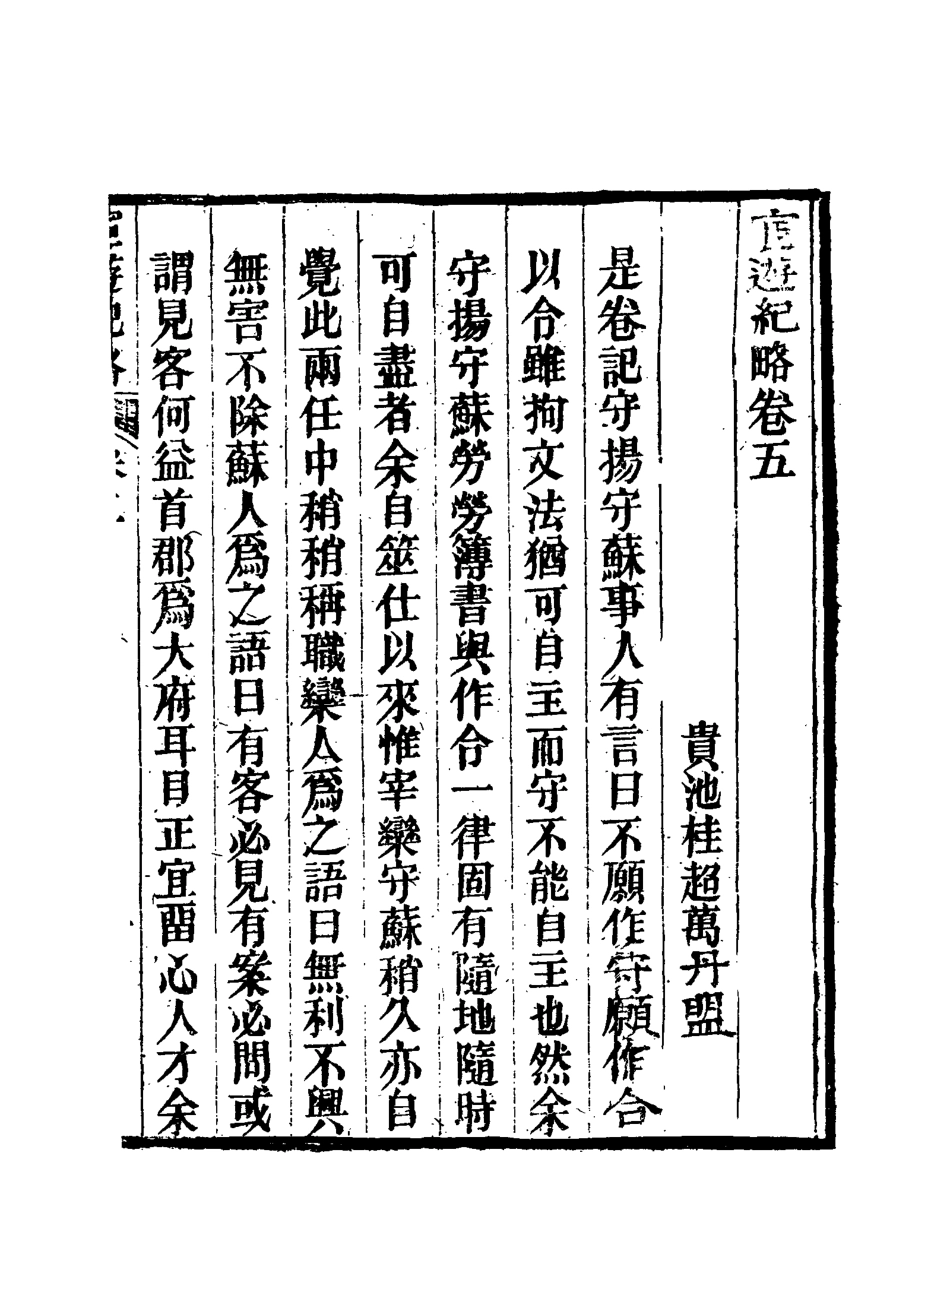 宦遊紀略卷五
貴池桂超萬丹盟
是卷記守揚守蘇事人有言曰不願作守願作令
以令雖拘文法猶可自主而守不能自主也然余
守揚守蘇勞勞簿書與作令一律固有隨地隨時
可自盡者余自筮仕以來惟宰欒守蘇稍久亦自
覺此兩任中稍稍稱職欒人爲之語曰無利不興
無害不除蘇人爲之語曰有客必見有案必問或
謂見客何益首郡爲大府耳目正宜畱心人才余